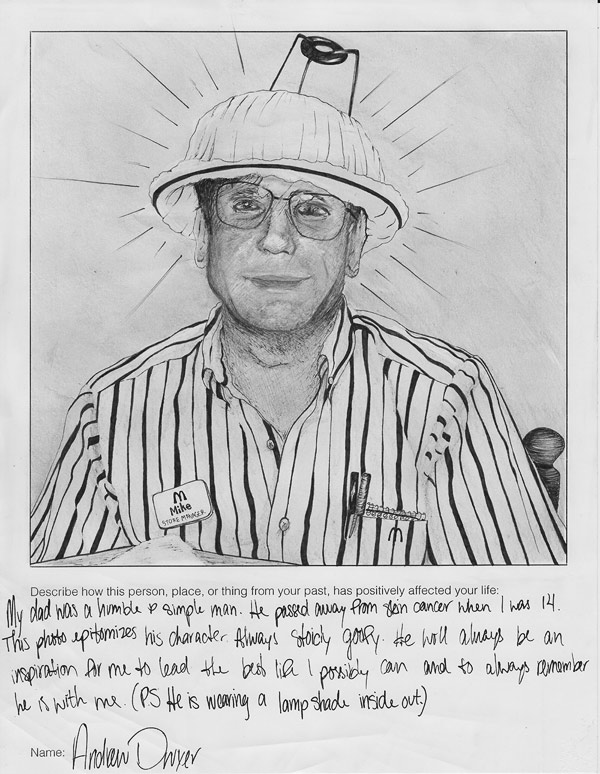 M
Mike
STORE MANAGER
M
Describe how this person, place, or thing from your past, has positively affected your life:
My dad was a humble & simple man. He passed away from skin cancer when I was 14.
This photo epitomizes his character. Always stoicly goofy. He will always be an
inspiration for me to lead the best life I possibly can and to always remember
he is with me. (PS He is wearing a lamp shade inside out.)
Name: Andrew Dwyer